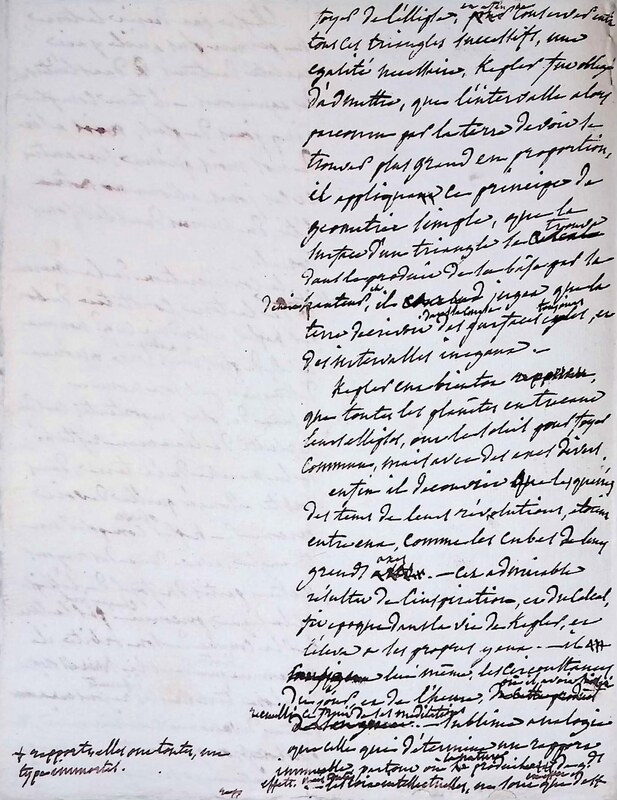 foyer de l'ellipse,
tous ces triangles successifs, une
egalité necessaire, Kepler fut obligé
d'admettre, que l'intervalle alors
parcouru par la terre devoit se
trouver plus grand en proportion,
il appliqua ce principe de
geometrie simple, que la
surface d'un triangle se trouve
dans le produit de sa base par la
hauteur, et il jugea que la
terre decrivoit dans le temps des surfaces egales, en
des intervalles inegaux.
Kepler eut bientot
que toutes les planètes en tracant
leurs ellipses, ont le soleil pour foyer
commun, mais avec des axes divers.
enfin il decouvrit que les quarrés
des tems de leurs révolutions, etoient
entre eux, comme les cubes de leurs
grands axes. — cet admirable
resultat de l'inspiration, et du calcul,
fit epoque dans la vie de Kepler, et
l'éleva a ses propres yeux. — il
lui même, les circonstances
du jour, et de l'heure, où il avoit
recueilli ce fruit de ses méditations
sublime analogie
que celle qui détermine un rapport
immuable partout où la nature produit de
effets.
+ rapports elles ont toutes, un
type immortel.